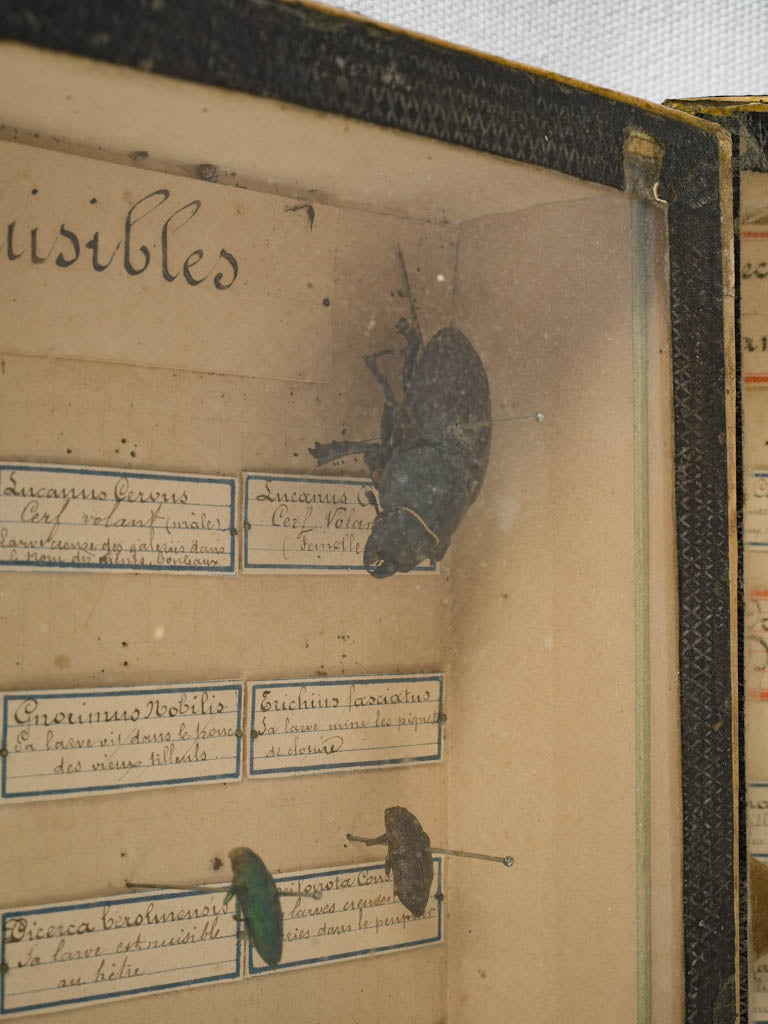 uisibles
Lucanus Cervus
Cerf volant (mâle)
Larve creuse des galeries dans
le tronc des
Lucanus C
Cerf Volan
(Femelle
Gnorimus Nobilis
Sa larve vit dans le tronc
des vieux tilleuls.
Trichius fasciatus
Sa larve mine les piquets
de cloture
Dicerca berolinensis
Sa larve est nuisible
au hêtre
cilonota Cons
larves creusent
ries dans le peuplier